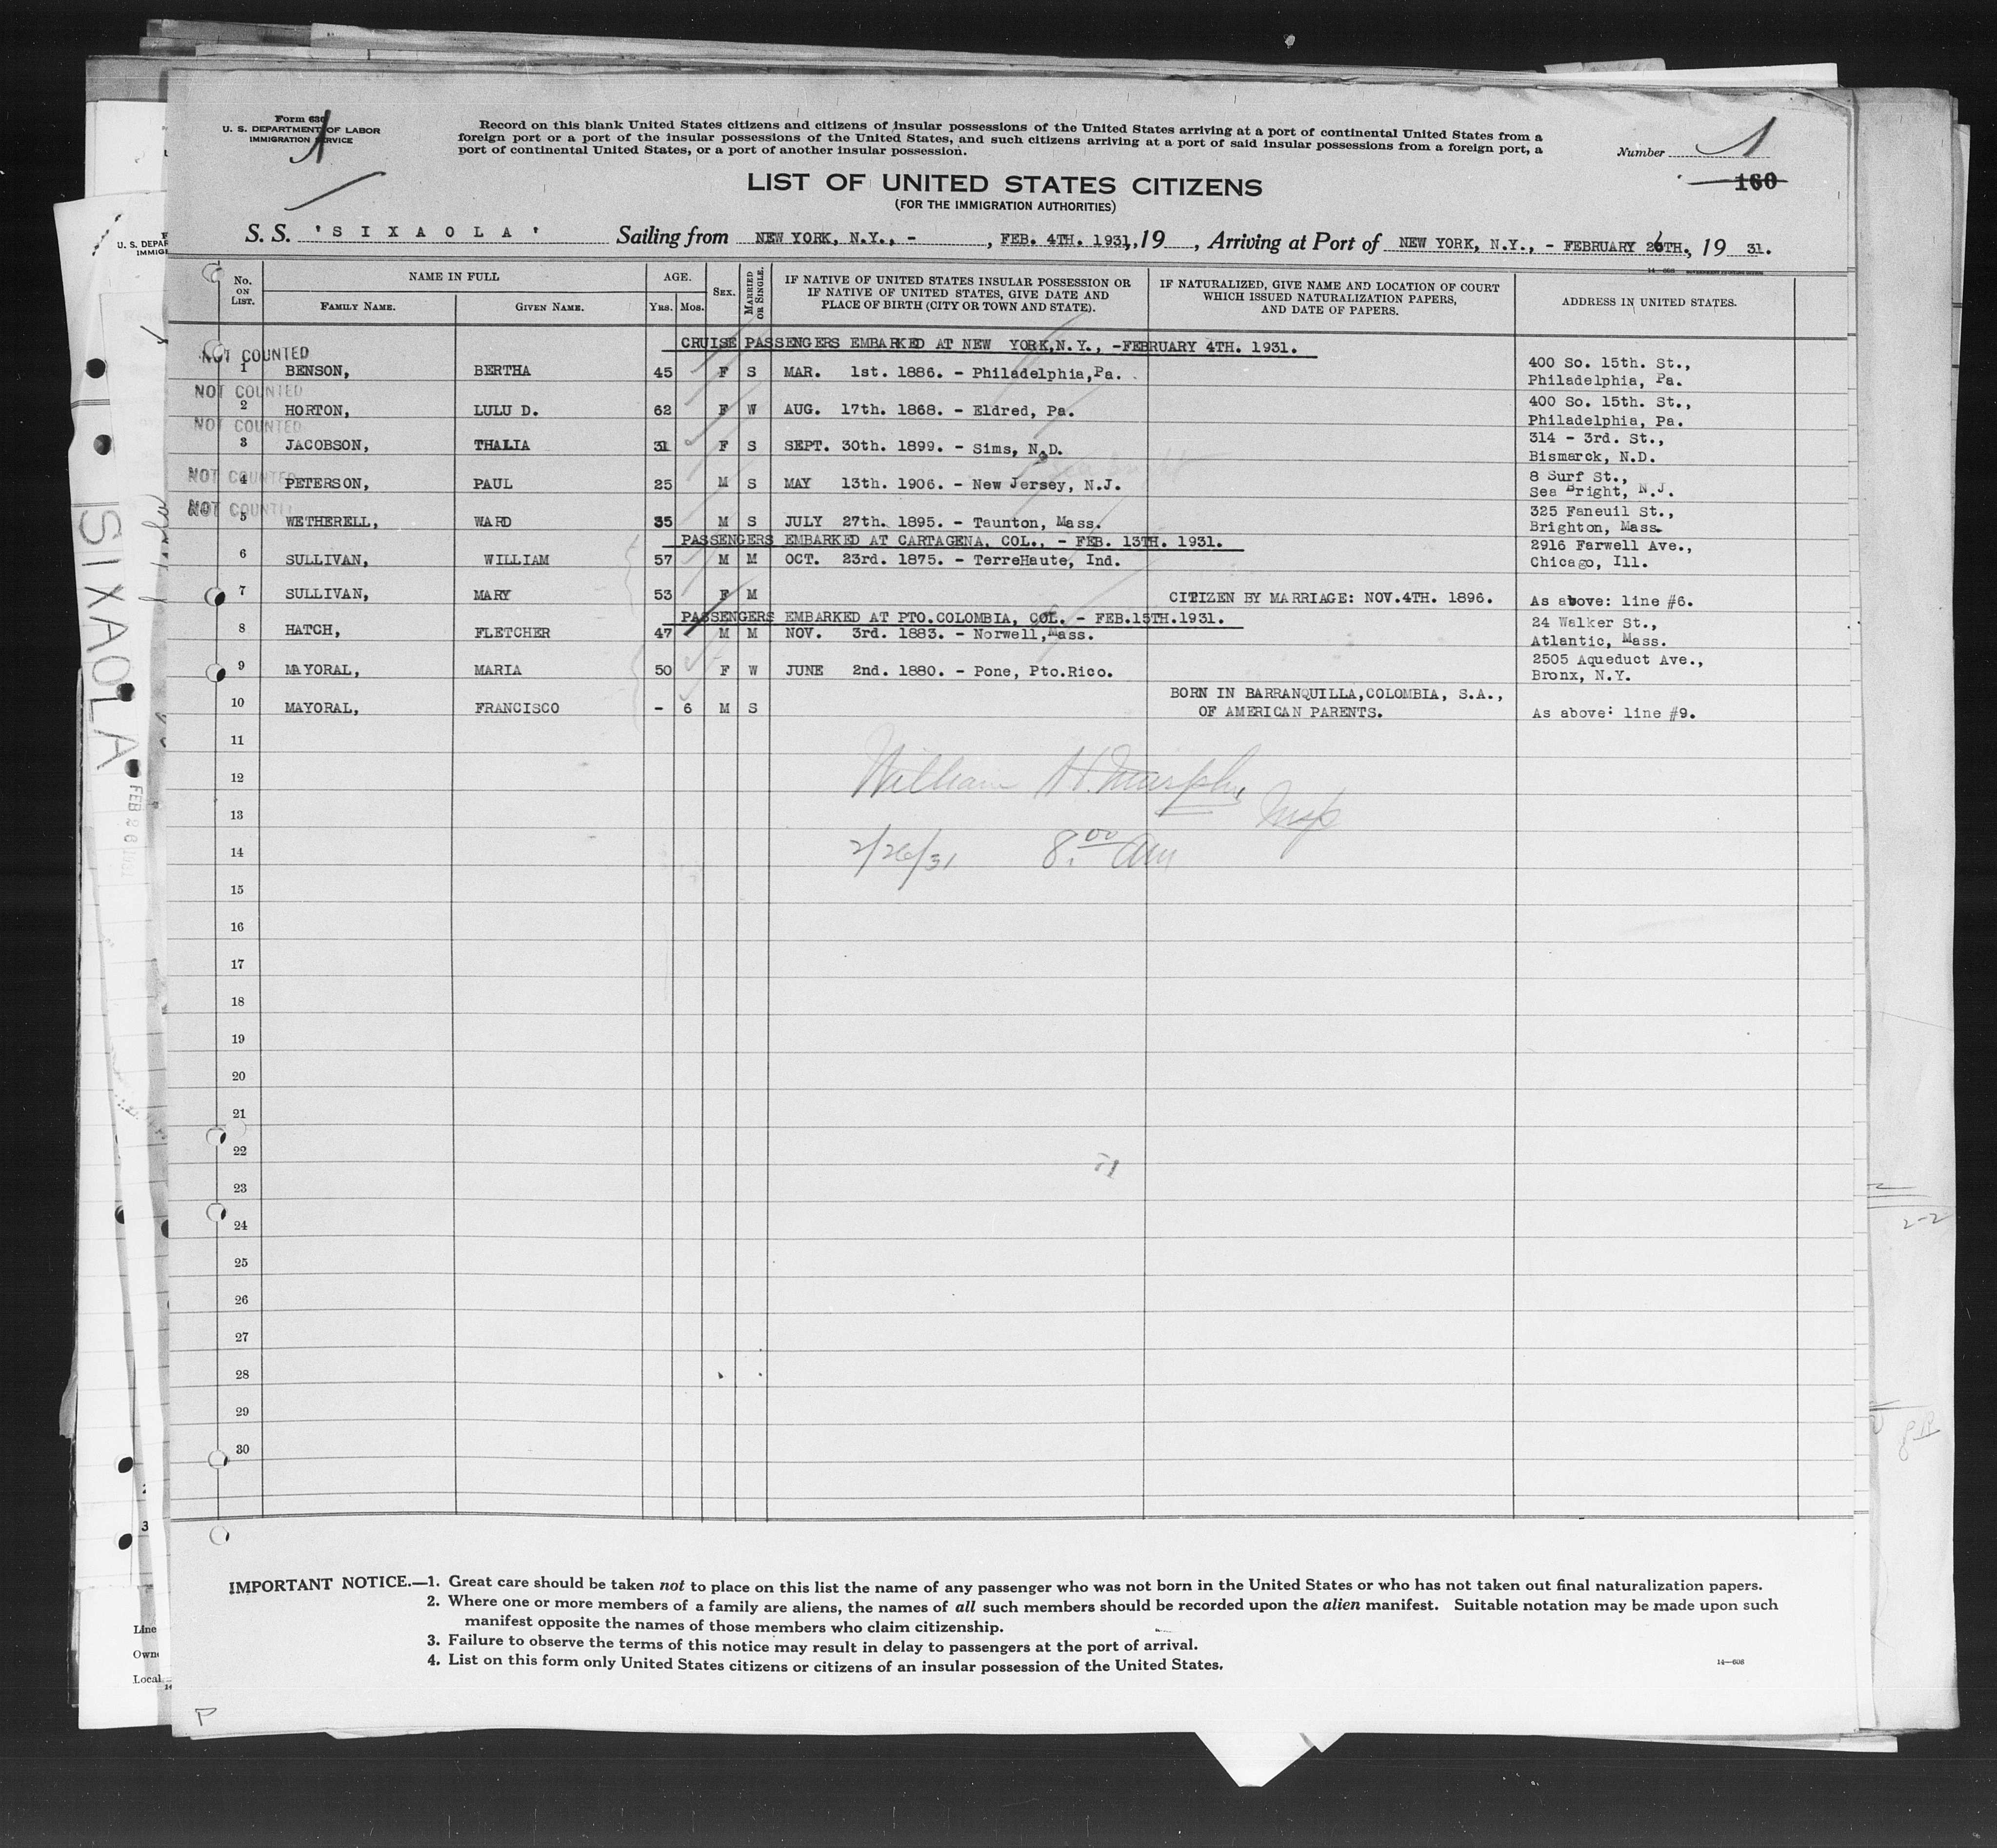 Form 630
U. S. DEPARTMENT OF LABOR
IMMIGRATION SERVICE
1
Record on this blank United States citizens and citizens of insular possessions of the United States arriving at a port of continental United States from a
foreign port or a port of the insular possessions of the United States, and such citizens arriving at a port of said insular possessions from a foreign port, a
port of continental United States, or a port of another insular possession.
Number 1
160
LIST OF UNITED STATES CITIZENS
(FOR THE IMMIGRATION AUTHORITIES)
S. S. 'SIXAOLA' Sailing from NEW YORK, N.Y., - , FEB. 4TH. 1931, 19 , Arriving at Port of NEW YORK, N.Y., - FEBRUARY 26TH., 19 31.
No. ON LIST. NAME IN FULL FAMILY NAME. GIVEN NAME. AGE. YRS. MOS. SEX. MARRIED OR SINGLE.
IF NATIVE OF UNITED STATES INSULAR POSSESSION OR
IF NATIVE OF UNITED STATES, GIVE DATE AND
PLACE OF BIRTH (CITY OR TOWN AND STATE).
IF NATURALIZED, GIVE NAME AND LOCATION OF COURT
WHICH ISSUED NATURALIZATION PAPERS,
AND DATE OF PAPERS.
ADDRESS IN UNITED STATES.
CRUISE PASSENGERS EMBARKED AT NEW YORK,N.Y., -FEBRUARY 4TH. 1931.
NOT COUNTED
1 BENSON, BERTHA 45 F S MAR. 1st. 1886. - Philadelphia,Pa. 400 So. 15th. St.,
Philadelphia, Pa.
NOT COUNTED
2 HORTON, LULU D. 62 F W AUG. 17th. 1868. - Eldred, Pa. 400 So. 15th. St.,
Philadelphia, Pa.
NOT COUNTED
3 JACOBSON, THALIA 31 F S SEPT. 30th. 1899. - Sims, N.D. 314 - 3rd. St.,
Bismarck, N.D.
NOT COUNTED
4 PETERSON, PAUL 25 M S MAY 13th. 1906. - New Jersey, N.J. 8 Surf St.,
Sea Bright, N.J.
NOT COUNTED
5 WETHERELL, WARD 35 M S JULY 27th. 1895. - Taunton, Mass. 325 Faneuil St.,
Brighton, Mass.
PASSENGERS EMBARKED AT CARTAGENA, COL., - FEB. 13TH. 1931.
6 SULLIVAN, WILLIAM 57 M M OCT. 23rd. 1875. - TerreHaute, Ind. 2916 Farwell Ave.,
Chicago, Ill.
7 SULLIVAN, MARY 53 F M CITIZEN BY MARRIAGE: NOV.4TH. 1896. As above: line #6.
PASSENGERS EMBARKED AT PTO.COLOMBIA, COL. - FEB.15TH.1931.
8 HATCH, FLETCHER 47 M M NOV. 3rd. 1883. - Norwell,Mass. 24 Walker St.,
Atlantic, Mass.
9 MAYORAL, MARIA 50 F W JUNE 2nd. 1880. - Pone, Pto.Rico. 2505 Aqueduct Ave.,
Bronx, N.Y.
10 MAYORAL, FRANCISCO - 6 M S BORN IN BARRANQUILLA,COLOMBIA, S.A.,
OF AMERICAN PARENTS. As above: line #9.
11
12
William H. Murphy
Insp
13
14
2/26/31 8.00 Am
15
16
17
18
19
20
21
22
23
24
25
26
27
28
29
30
IMPORTANT NOTICE.—1. Great care should be taken not to place on this list the name of any passenger who was not born in the United States or who has not taken out final naturalization papers.
2. Where one or more members of a family are aliens, the names of all such members should be recorded upon the alien manifest. Suitable notation may be made upon such
manifest opposite the names of those members who claim citizenship.
3. Failure to observe the terms of this notice may result in delay to passengers at the port of arrival.
4. List on this form only United States citizens or citizens of an insular possession of the United States.
14—608
P
SIXAOLA
U. S. DEPAR
IMMIG
Line
Owne
Local
2-2